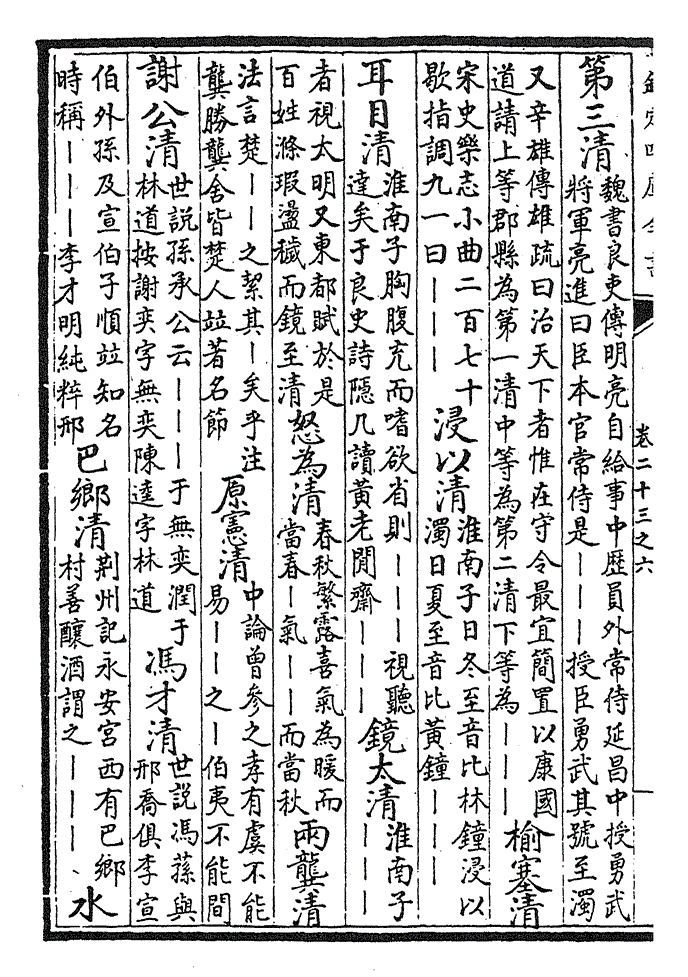 欽定四庫全書
卷二十三之六
第三清
魏書良吏傳明亮自給事中歷員外常侍延昌中授勇武
將軍亮進曰臣本官常侍是｜｜｜授臣勇武其號至濁
又辛雄傳雄疏曰治天下者惟在守令最宜簡置以康國
道請上等郡縣為第一清中等為第二清下等為｜｜｜
榆塞清
宋史樂志小曲二百七十
歇指調九一曰｜｜｜
浸以清
淮南子日冬至音比林鐘浸以
濁日夏至音比黃鐘｜｜｜
耳目清
淮南子胸腹充而嗜欲省則｜｜｜視聽
達矣于良史詩隱几讀黃老閒齋｜｜｜
鏡太清
淮南子
｜｜｜
者視太明又東都賦於是
百姓滌瑕盪穢而鏡至清
怒為清
春秋繁露喜氣為暖而
當春｜氣｜｜而當秋
兩龔清
法言楚｜｜之絜其｜矣乎注
龔勝龔舍皆楚人竝著名節
原憲清
中論曾參之孝有虞不能
易｜｜之｜伯夷不能間
謝公清
世說孫承公云｜｜｜于無奕潤于
林道按謝奕字無奕陳逵字林道
馮才清
世說馮蓀與
邢喬俱李宣
伯外孫及宣伯子順竝知名
時稱｜｜｜李才明純粹邢
巴鄉清
荆州記永安宮西有巴鄉
村善釀酒謂之｜｜｜
水